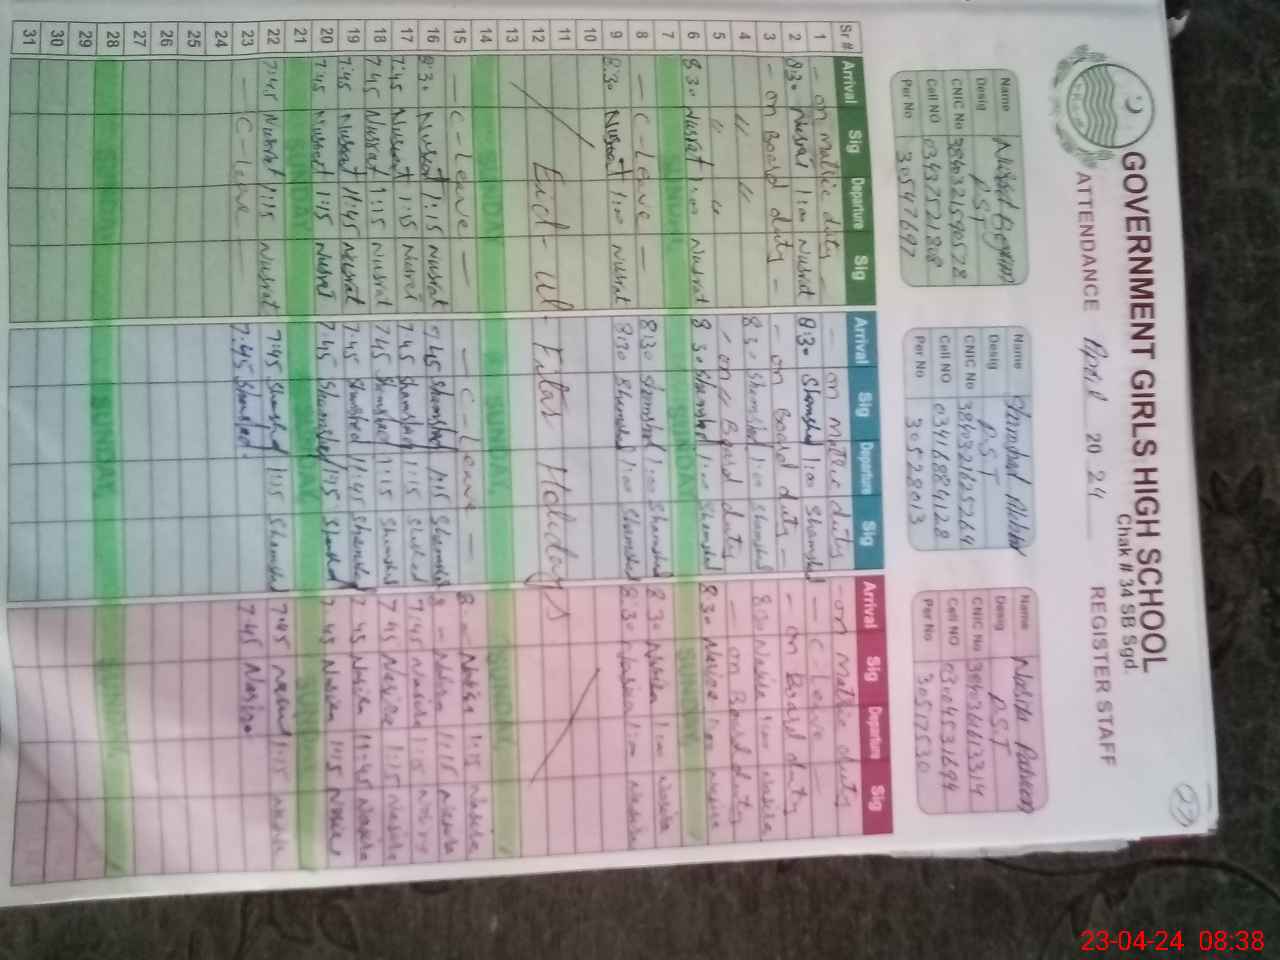 GOVERNMENT GIRLS HIGH SCHOOL
Chak # 34 SB Sgd.
ATTENDANCE April 2024 REGISTER STAFF
22
Name Nusrat Begum
Desig PST
CNIC No 3840321590528
Cell NO 03437521808
Per No 30547697
Name Shamshad Akhtar
Desig PST
CNIC No
Cell NO 03416884128
Per No 30528013
Name Nasira Parveen
Desig PST
CNIC No
Cell NO 03045531694
Per No 30517530
Sr # Arrival Sig Departure Sig Arrival Sig Departure Sig Arrival Sig Departure Sig
1 - on matric duty - - on matric duty - on matric duty
2 8:30 Nusrat 1:00 Nusrat 8:30 Shamshad 1:00 Shamshad - C-Leave -
3 - on Board duty - - on Board duty - - on Board duty
4 〃 〃 8:30 Shamshad 1:00 Shamshad 8:30 Nasira 1:00 Nasira
5 〃 〃 - on Board duty - on Board duty
6 8:30 Nusrat 1:00 Nusrat 8:30 Shamshad 1:00 Shamshad 8:30 Nasira 1:00 Nasira
7 SUNDAY SUNDAY SUNDAY
8 - C-Leave - 8:30 Shamshad 1:00 Shamshad 8:30 Nasira 1:00 Nasira
9 8:30 Nusrat 1:00 Nusrat 8:30 Shamshad 1:00 Shamshad 8:30 Nasira 1:00 Nasira
10
11
12 Eid-Ul-Fitar Holidays
13
14 SUNDAY SUNDAY SUNDAY
15 - C-Leave - - C-Leave - Nasira 1:15 Nasira
16 8:30 Nusrat 1:15 Nusrat 7:45 Shamshad 1:15 Shamshad Nasira 1:15 Nasira
17 7:45 Nusrat 1:15 Nusrat 7:45 Shamshad 1:15 Shamshad 7:45 Nasira 1:15 Nasira
18 7:45 Nusrat 1:15 Nusrat 7:45 Shamshad 1:15 Shamshad 7:45 Nasira 1:15 Nasira
19 7:45 Nusrat 11:45 Nusrat 7:45 Shamshad 11:45 Shamshad 7:45 Nasira 11:45 Nasira
20 7:45 Nusrat 1:15 Nusrat 7:45 Shamshad 1:15 Shamshad 7:45 Nasira 1:15 Nasira
21 SUNDAY SUNDAY SUNDAY
22 7:45 Nusrat 1:15 Nusrat 7:45 Shamshad 1:15 Shamshad 7:45 Nasira 1:15 Nasira
23 - C-Leave 7:45 Shamshad 7:45 Nasira
24
25
26
27
28 SUNDAY SUNDAY SUNDAY
29
30
31
23-04-24 08:38